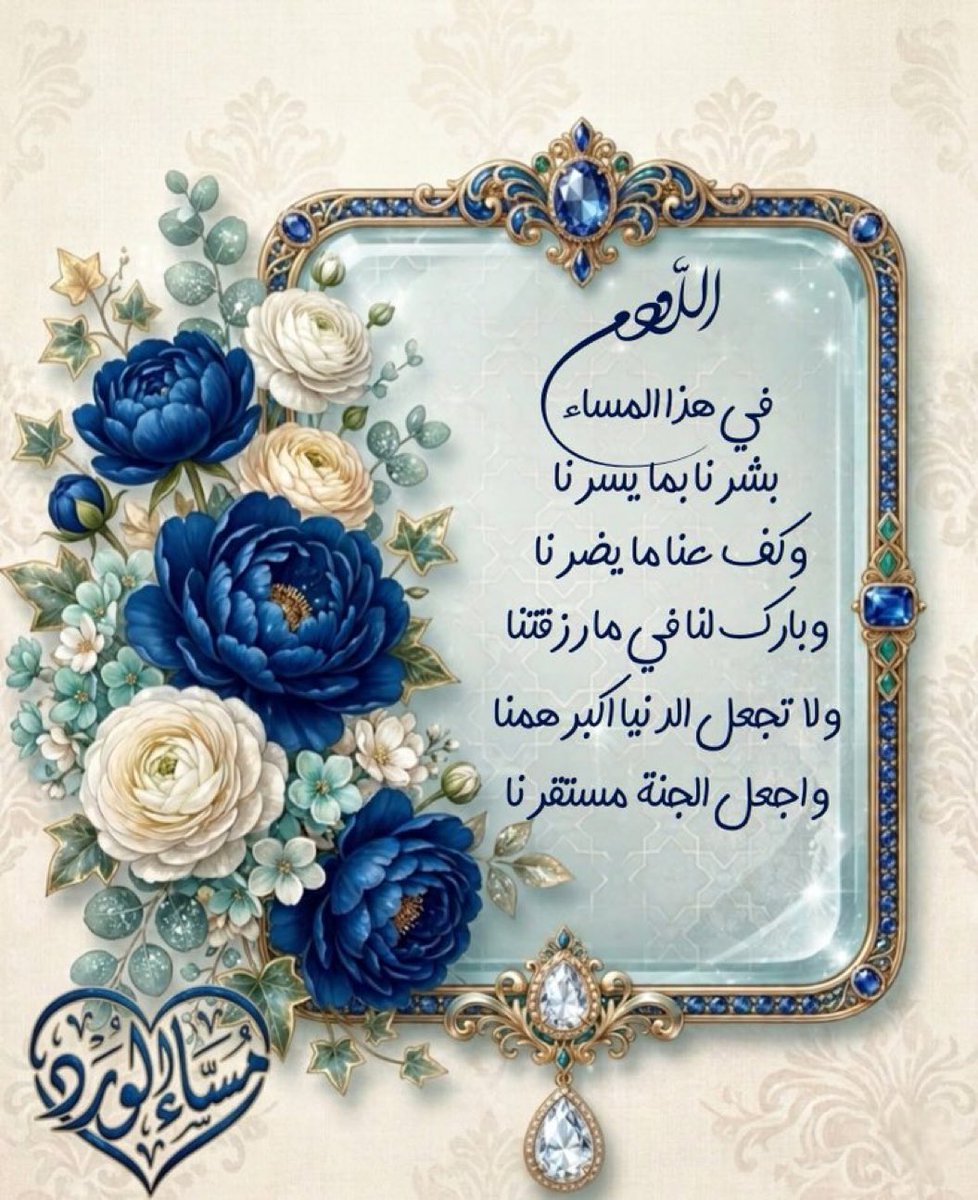 اللهم
في هذا المساء
بشرنا بما يسرنا
وكف عنا ما يضرنا
وبارك لنا في ما رزقتنا
ولا تجعل الدنيا اكبر همنا
واجعل الجنة مستقرنا
مساء الورد